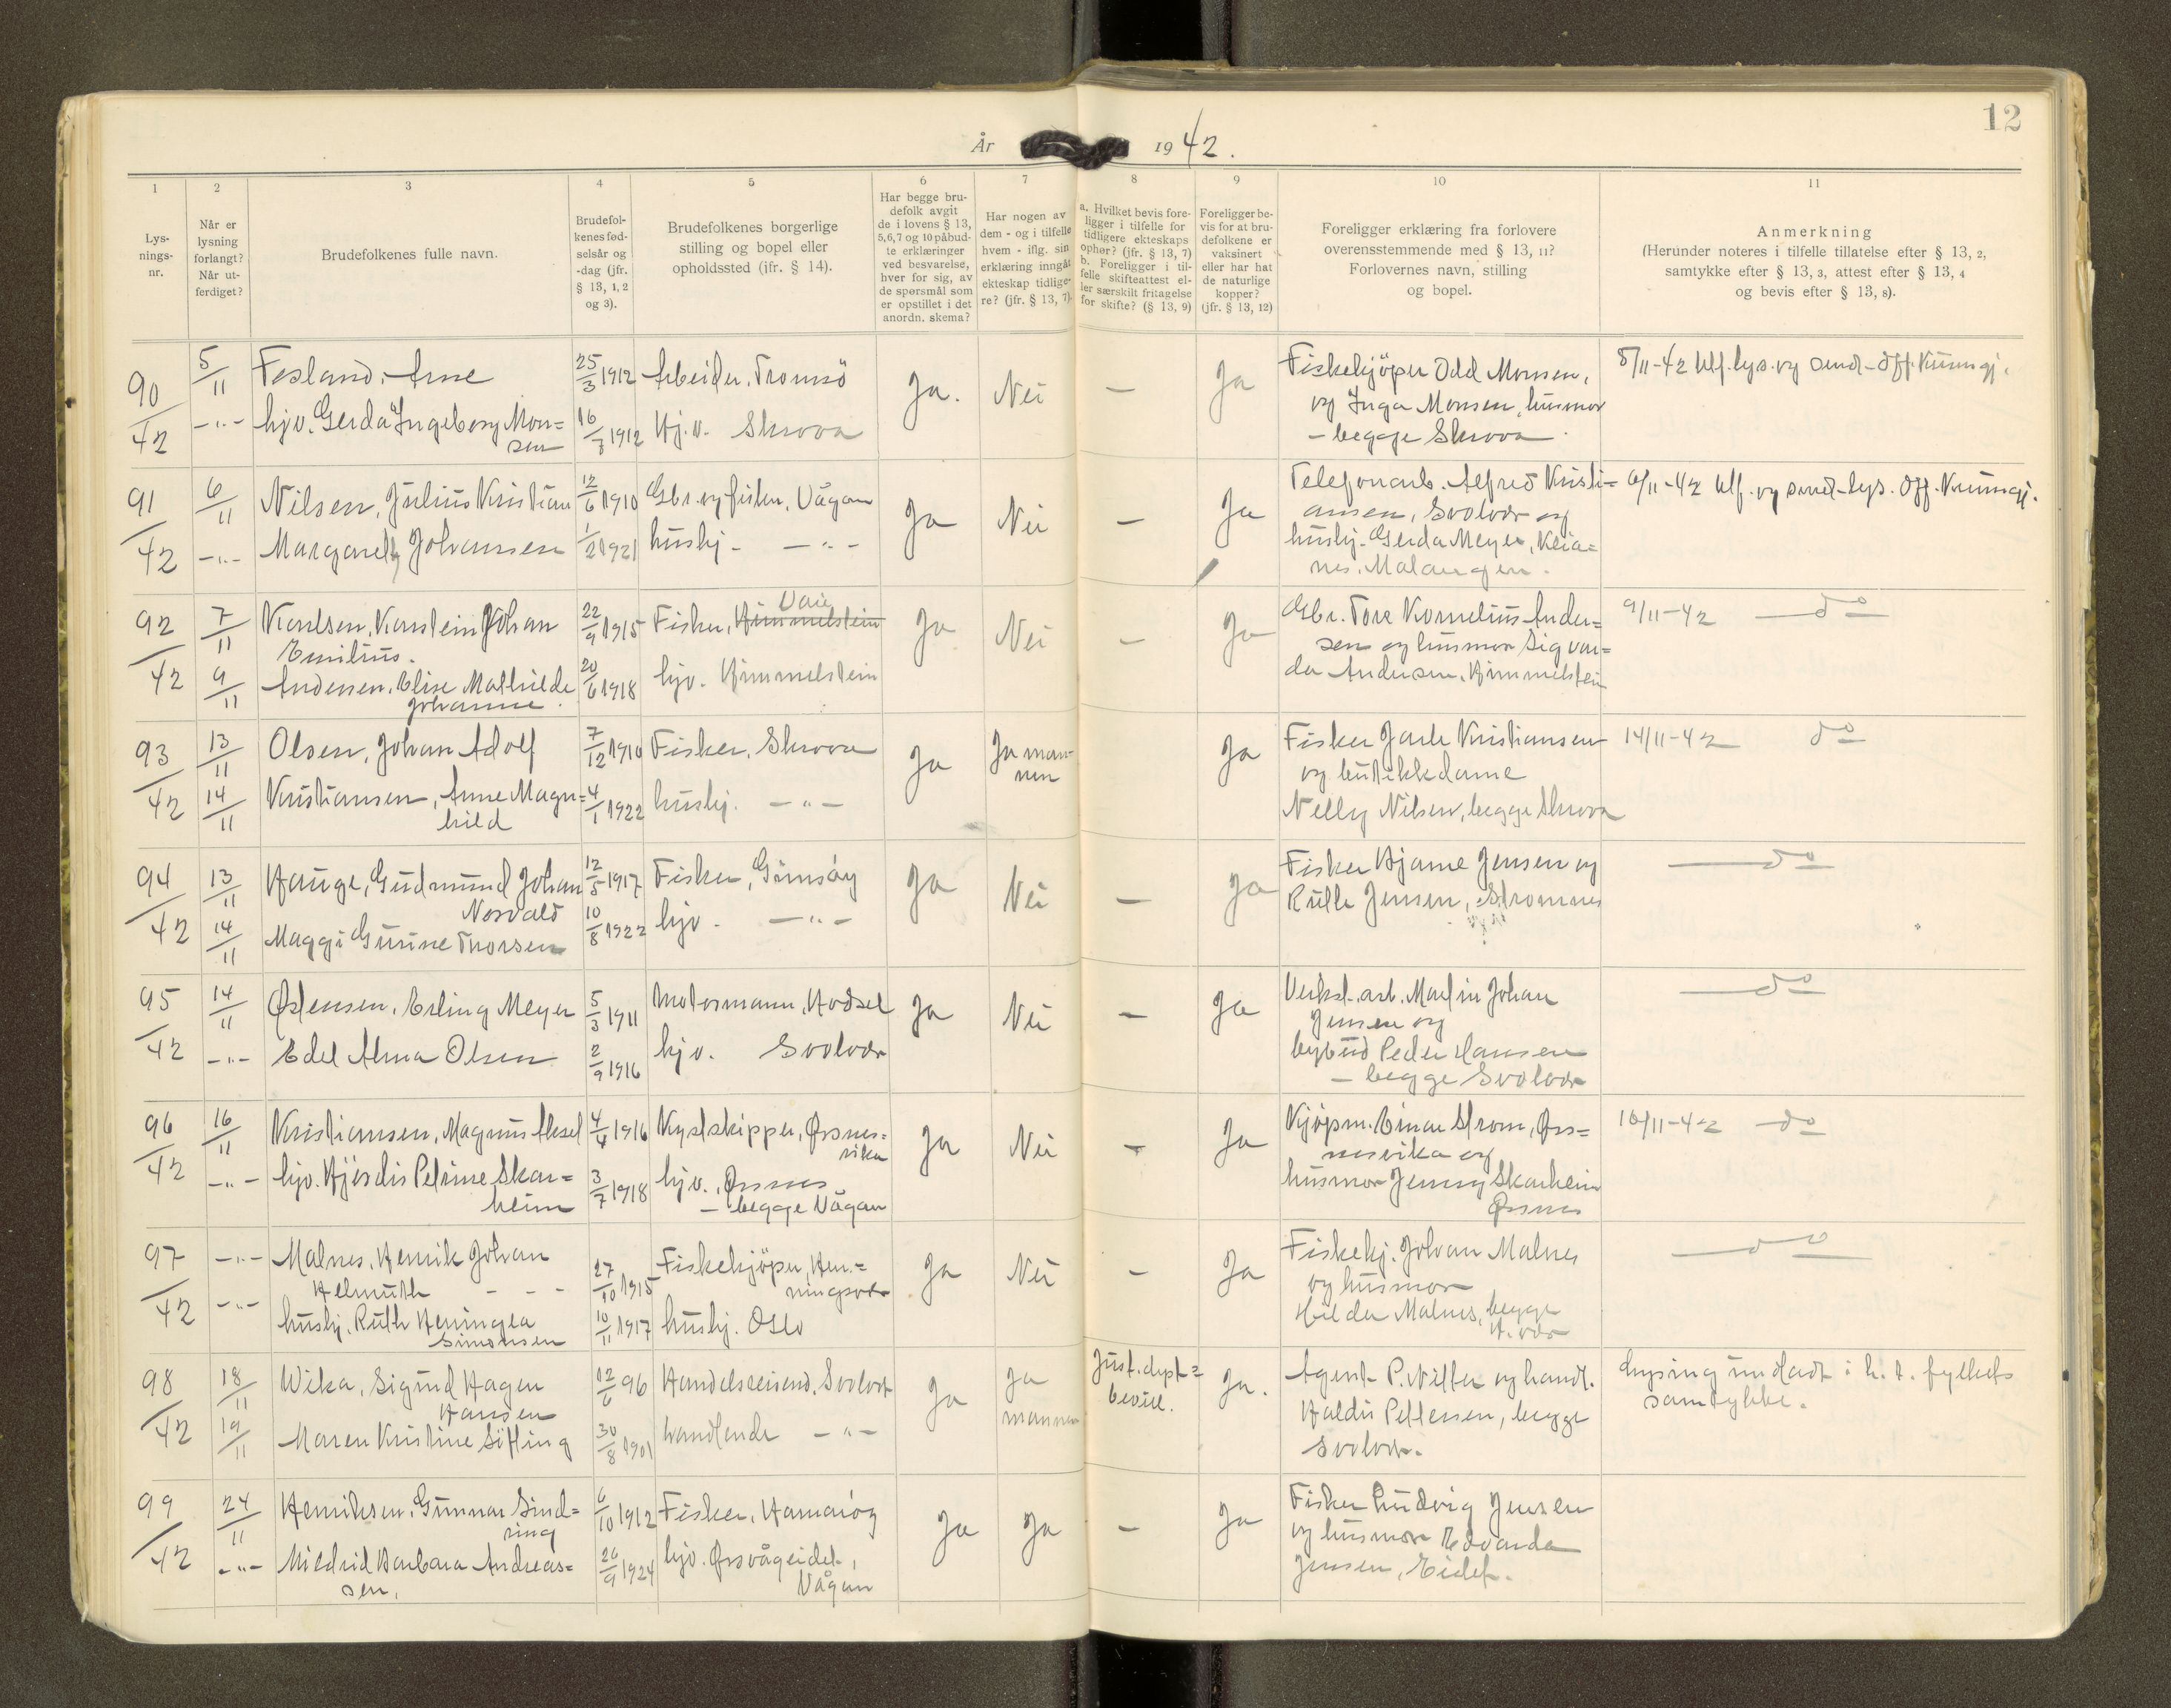 12
År 1942.
1
2
3
4
5
6
7
8
9
10
11
Lys-
nings-
nr.
Når er
lysning
forlangt?
Når ut-
ferdiget?
Brudefolkenes fulle navn.
Brudefol-
kenes fød-
selsår og
-dag (jfr.
§ 13, 1, 2
og 3).
Brudefolkenes borgerlige
stilling og bopel eller
opholdssted (jfr. § 14).
Har begge bru-
defolk avgit
de i lovens § 13,
5, 6, 7 og 10 påbud-
te erklæringer
ved besvarelse,
hver for sig, av
de spørsmål som
er opstillet i det
anordn. skema?
Har nogen av
dem - og i tilfelle
hvem - iflg. sin
erklæring inngåt
ekteskap tidlige-
re? (jfr. § 13, 7).
a. Hvilket bevis fore-
ligger i tilfelle for
tidligere ekteskaps
ophør? (jfr. § 13, 7)
b. Foreligger i til-
felle skifteattest el-
ler særskilt fritagelse
for skifte? (§ 13, 9)
Foreligger be-
vis for at bru-
defolkene er
vaksinert
eller har hat
de naturlige
kopper?
(jfr. § 13, 12)
Foreligger erklæring fra forlovere
overensstemmende med § 13, 11?
Forlovernes navn, stilling
og bopel.
Anmerkning
(Herunder noteres i tilfelle tillatelse efter § 13, 2,
samtykke efter § 13, 3, attest efter § 13, 4
og bevis efter § 13, 8).
90/42
5/11
Fosland, Arne
25/3 1912
Arbeider, Tromsö
Ja.
Nei
—
Ja
Fiskekjöper Odd Monsen,
og Inga Monsen, husmor
- begge Skrova
5/11-42 Utf. lys. og send. off. kunngj.
-"-
hjv. Gerda Ingeborg Mon=
sen
16/7 1912
Hj.v. Skrova
91/42
6/11
Nilsen, Julius Kristian
12/6 1910
Gbr. og fisker, Vågan
Ja
Nei
—
Ja
Telefonarb. Alfred Kristi=
ansen, Svolvær og
hushj. Gerda Meyer,
nes, Malangen.
6/11-42 Utf. og send. lys. Off. Kunngj.
-"-
Margareth Johansen
1/2 1921
hushj. -"-
92/42
7/11
Karlsen, Karstein Johan
Emilius.
22/9 1915
Fisker, Himmelstein
Ja
Nei
—
Ja
Gbr. Tore Kornelius Ander=
sen og husmor Sigvar=
da Andersen, Himmelstein
9/11-42 do
9/11
Andersen, Elise Mathilde
Johanne.
20/6 1918
hjv. Himmelstein
93/42
13/11
Olsen, Johan Adolf
7/12 1910
Fisker, Skrova
Ja
Ja man-
nen
Ja
Fisker Jarle Kristiansen
og butikkdame
Nelly Nilsen, begge Skrova
14/11-42 do
14/11
Kristiansen, Anne Magn=
hild
4/1 1922
hushj. -"-
94/42
13/11
Hauge, Gudmund Johan
Norvald
12/5 1917
Fisker, Gimsöy
Ja
Nei
—
Ja
Fisker Hjarne Jensen og
Rulle Jensen, Strømnes
do
14/11
Maggi Gurine Thorsen
10/8 1922
hjv. -"-
95/42
14/11
Østensen, Erling Meyer
5/3 1911
Motormann, Hadsel
Ja
Nei
—
Ja
Verkst. arb. Martin Johan
Jensen og
bybud Peder Hansen
- begge Svolvær
do
-"-
Edel Alma Olsen
2/9 1916
hjv. Svolvær
96/42
16/11
Kristiansen, Magnus Aksel
4/4 1916
Kystskipper, Ørsnes=
vika
Ja
Nei
—
Ja
Kjöpm. Einar Strøm, Ørs=
nesvika og
husmor Jenny Skarheim
Ørsnes
16/11-42 do
-"-
hjv. Hjördis Petrine Skar=
heim
3/7 1918
hjv. Ørsnes
- begge Vågan
97/42
-"-
Malnes, Henrik Johan
Helmuth
27/10 1915
Fiskekjöper, Hen=
ningsvær
Ja
Nei
—
Ja
Fiskekj. Johan Malnes
og husmor
Hilda Malnes, begge
H.vær
do
-"-
hushj. Ruth Heningea
Simonsen
10/11 1917
hushj. Oslo
98/42
18/11
Wika, Sigurd Hagen
Hansen
12/6 96
Handelsreisend. Svolvær
Ja
Ja
mannen
Just. dept=
bevill.
Ja.
Agent P. Nilsen og handl.
Haldis Pettersen, begge
Svolvær.
Lysing undladt i h. t. fylkets
samtykke.
19/11
Maren Kristine Söfting
30/8 1901
handlende -"-
99/42
24/11
Henriksen, Gunnar Sind=
ring
6/10 1912
Fisker, Hamaröy
Ja
Ja
—
Ja
Fisker Ludvig Jensen
og husmor Edvarda
Jensen, Eidet.
-"-
Mildrid Barbara Andreas=
sen.
26/9 1924
hjv. Ørsvågeidet,
Vågan